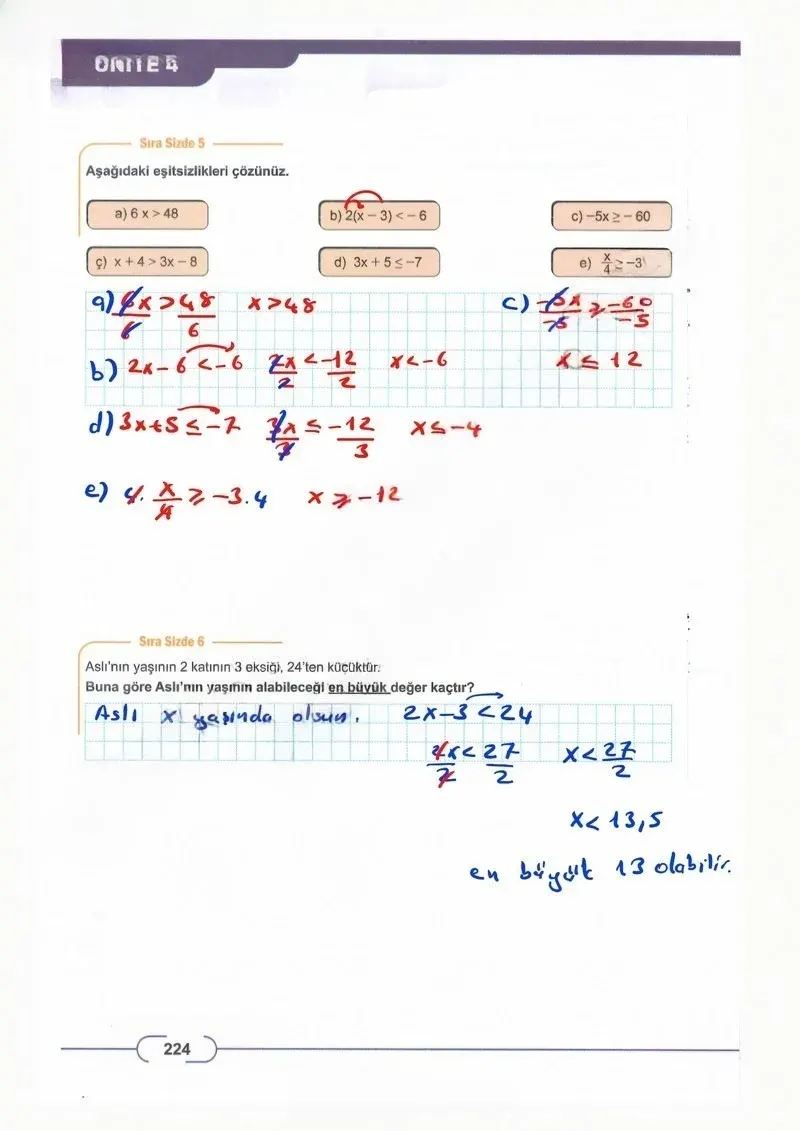 ÜNİTE 4
Sıra Sizde 5
Aşağıdaki eşitsizlikleri çözünüz.
a) 6 x > 48
b) 2(x – 3) < – 6
c) –5x ≥ – 60
ç) x + 4 > 3x – 8
d) 3x + 5 ≤ –7
e) x/4 ≥ –3
a) 6x/6 > 48/6 x > 48
c) –5x/–5 ≥ –60/–5
x ≤ 12
b) 2x – 6 < – 6 2x/2 < –12/2 x < –6
d) 3x + 5 ≤ – 7 3x/3 ≤ –12/3 x ≤ –4
e) 4. x/4 ≥ –3.4 x ≥ –12
Sıra Sizde 6
Aslı'nın yaşının 2 katının 3 eksiği, 24'ten küçüktür.
Buna göre Aslı'nın yaşının alabileceği en büyük değer kaçtır?
Aslı x yaşında olsun. 2x – 3 < 24
2x/2 < 27/2 x < 27/2
x < 13,5
en büyük 13 olabilir.
224